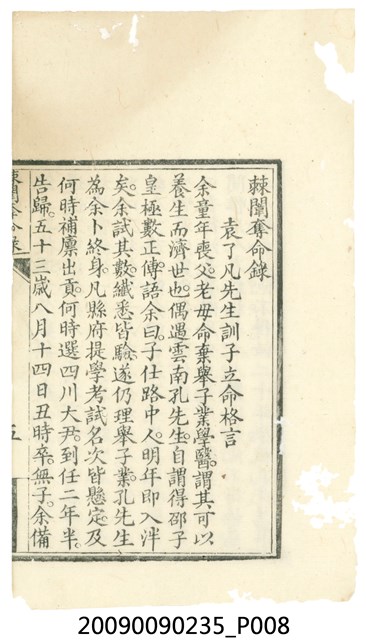 棘闈奪命錄
袁了凡先生訓子立命格言
余童年喪父。老母命棄舉子業學醫。謂其可以
養生而濟世也。偶遇雲南孔先生。自謂得邵子
皇極數正傳。語余曰。子仕路中人。明年即入泮
矣。余試其數。纖悉皆驗。遂仍理舉子業。孔先生
為余卜終身。凡縣府提學考試名次皆懸定。及
何時補廩出貢。何時選四川大尹。到任二年半。
告歸。五十三歲八月十四日丑時卒。無子。余備
五
20090090235_P008